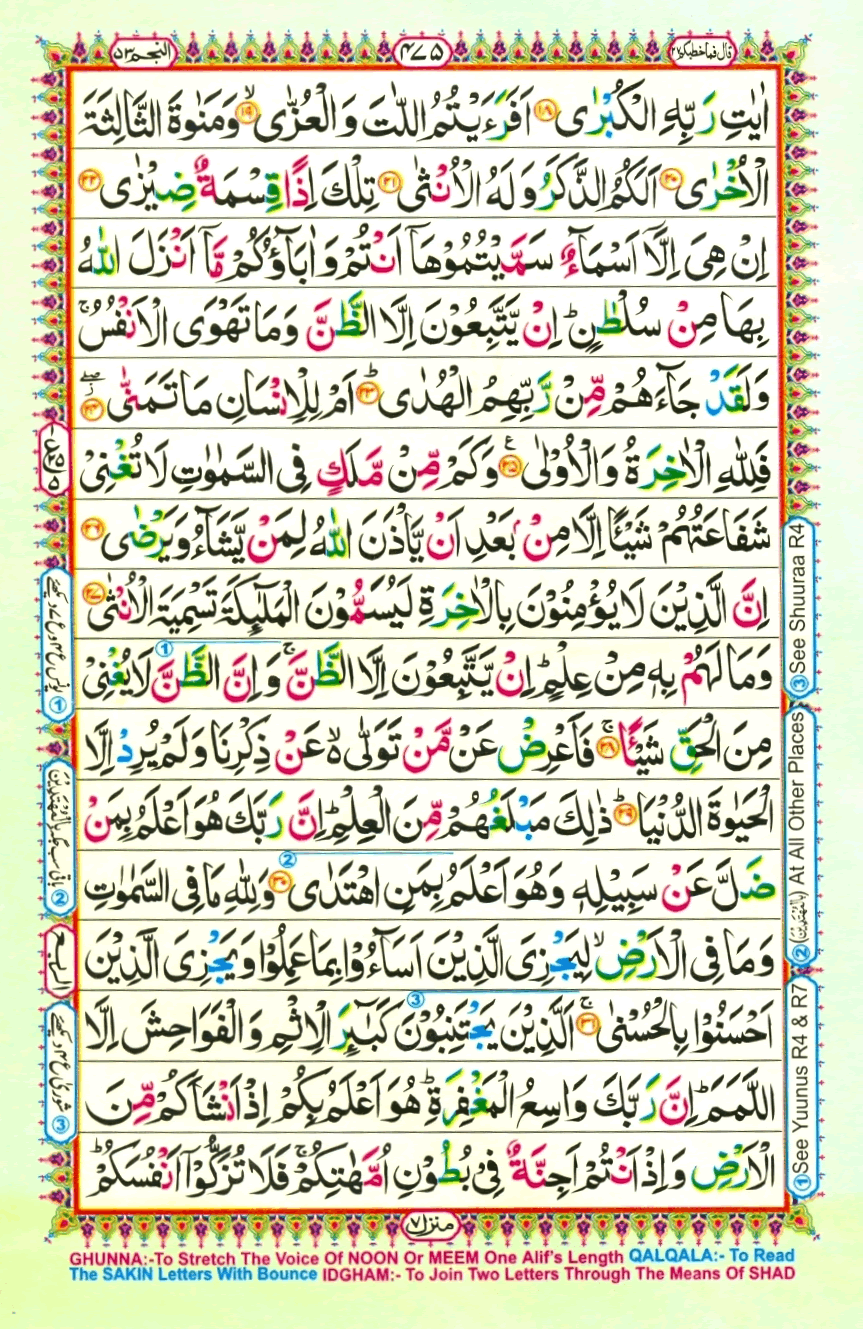 النجم ۵۳
۴۷۵
قال فما خطبكم ۲۷
اٰيٰتِ رَبِّهِ الْكُبْرٰى ۝۱۸ اَفَرَءَيْتُمُ اللّٰتَ وَالْعُزّٰى ۝۱۹ وَمَنٰوةَ الثَّالِثَةَ
الْاُخْرٰى ۝۲۰ اَلَكُمُ الذَّكَرُ وَلَهُ الْاُنْثٰى ۝۲۱ تِلْكَ اِذًا قِسْمَةٌ ضِيْزٰى ۝۲۲
اِنْ هِىَ اِلَّاۤ اَسْمَآءٌ سَمَّيْتُمُوْهَاۤ اَنْتُمْ وَاٰبَآؤُكُمْ مَّاۤ اَنْزَلَ اللّٰهُ
بِهَا مِنْ سُلْطٰنٍ ؕ اِنْ يَّتَّبِعُوْنَ اِلَّا الظَّنَّ وَمَا تَهْوَى الْاَنْفُسُ ۚ
وَلَقَدْ جَآءَهُمْ مِّنْ رَّبِّهِمُ الْهُدٰى ؕ ۝۲۳ اَمْ لِلْاِنْسَانِ مَا تَمَنّٰى ۝۲۴
فَلِلّٰهِ الْاٰخِرَةُ وَالْاُوْلٰى ۝۲۵ وَكَمْ مِّنْ مَّلَكٍ فِى السَّمٰوٰتِ لَا تُغْنِىْ
شَفَاعَتُهُمْ شَيْئًا اِلَّا مِنْۢ بَعْدِ اَنْ يَّاْذَنَ اللّٰهُ لِمَنْ يَّشَآءُ وَيَرْضٰى ۝۲۶
اِنَّ الَّذِيْنَ لَا يُؤْمِنُوْنَ بِالْاٰخِرَةِ لَيُسَمُّوْنَ الْمَلٰٓئِكَةَ تَسْمِيَةَ الْاُنْثٰى ۝۲۷
وَمَا لَهُمْ بِهٖ مِنْ عِلْمٍ ؕ اِنْ يَّتَّبِعُوْنَ اِلَّا الظَّنَّ ۚ وَاِنَّ الظَّنَّ لَا يُغْنِىْ
مِنَ الْحَقِّ شَيْئًا ۚ ۝۲۸ فَاَعْرِضْ عَنْ مَّنْ تَوَلّٰى ۙ۬ عَنْ ذِكْرِنَا وَلَمْ يُرِدْ اِلَّا
الْحَيٰوةَ الدُّنْيَا ؕ ۝۲۹ ذٰلِكَ مَبْلَغُهُمْ مِّنَ الْعِلْمِ ؕ اِنَّ رَبَّكَ هُوَ اَعْلَمُ بِمَنْ
ضَلَّ عَنْ سَبِيْلِهٖ وَهُوَ اَعْلَمُ بِمَنِ اهْتَدٰى ۝۳۰ وَلِلّٰهِ مَا فِى السَّمٰوٰتِ
وَمَا فِى الْاَرْضِ ۙ لِيَجْزِىَ الَّذِيْنَ اَسَآءُوْا بِمَا عَمِلُوْا وَيَجْزِىَ الَّذِيْنَ
اَحْسَنُوْا بِالْحُسْنٰى ۚ ۝۳۱ اَلَّذِيْنَ يَجْتَنِبُوْنَ كَبٰٓئِرَ الْاِثْمِ وَالْفَوَاحِشَ اِلَّا
اللَّمَمَ ؕ اِنَّ رَبَّكَ وَاسِعُ الْمَغْفِرَةِ ؕ هُوَ اَعْلَمُ بِكُمْ اِذْ اَنْشَاَكُمْ مِّنَ
الْاَرْضِ وَاِذْ اَنْتُمْ اَجِنَّةٌ فِىْ بُطُوْنِ اُمَّهٰتِكُمْ ۚ فَلَا تُزَكُّوْۤا اَنْفُسَكُمْ ؕ
①
②
③
الربع
③ See Shuuraa R4
② (بِالْمُهْتَدِيْنَ) At All Other Places
① See Yuunus R4 & R7
منزل ۷
GHUNNA:-To Stretch The Voice Of NOON Or MEEM One Alif's Length QALQALA:- To Read
The SAKIN Letters With Bounce IDGHAM:- To Join Two Letters Through The Means Of SHAD